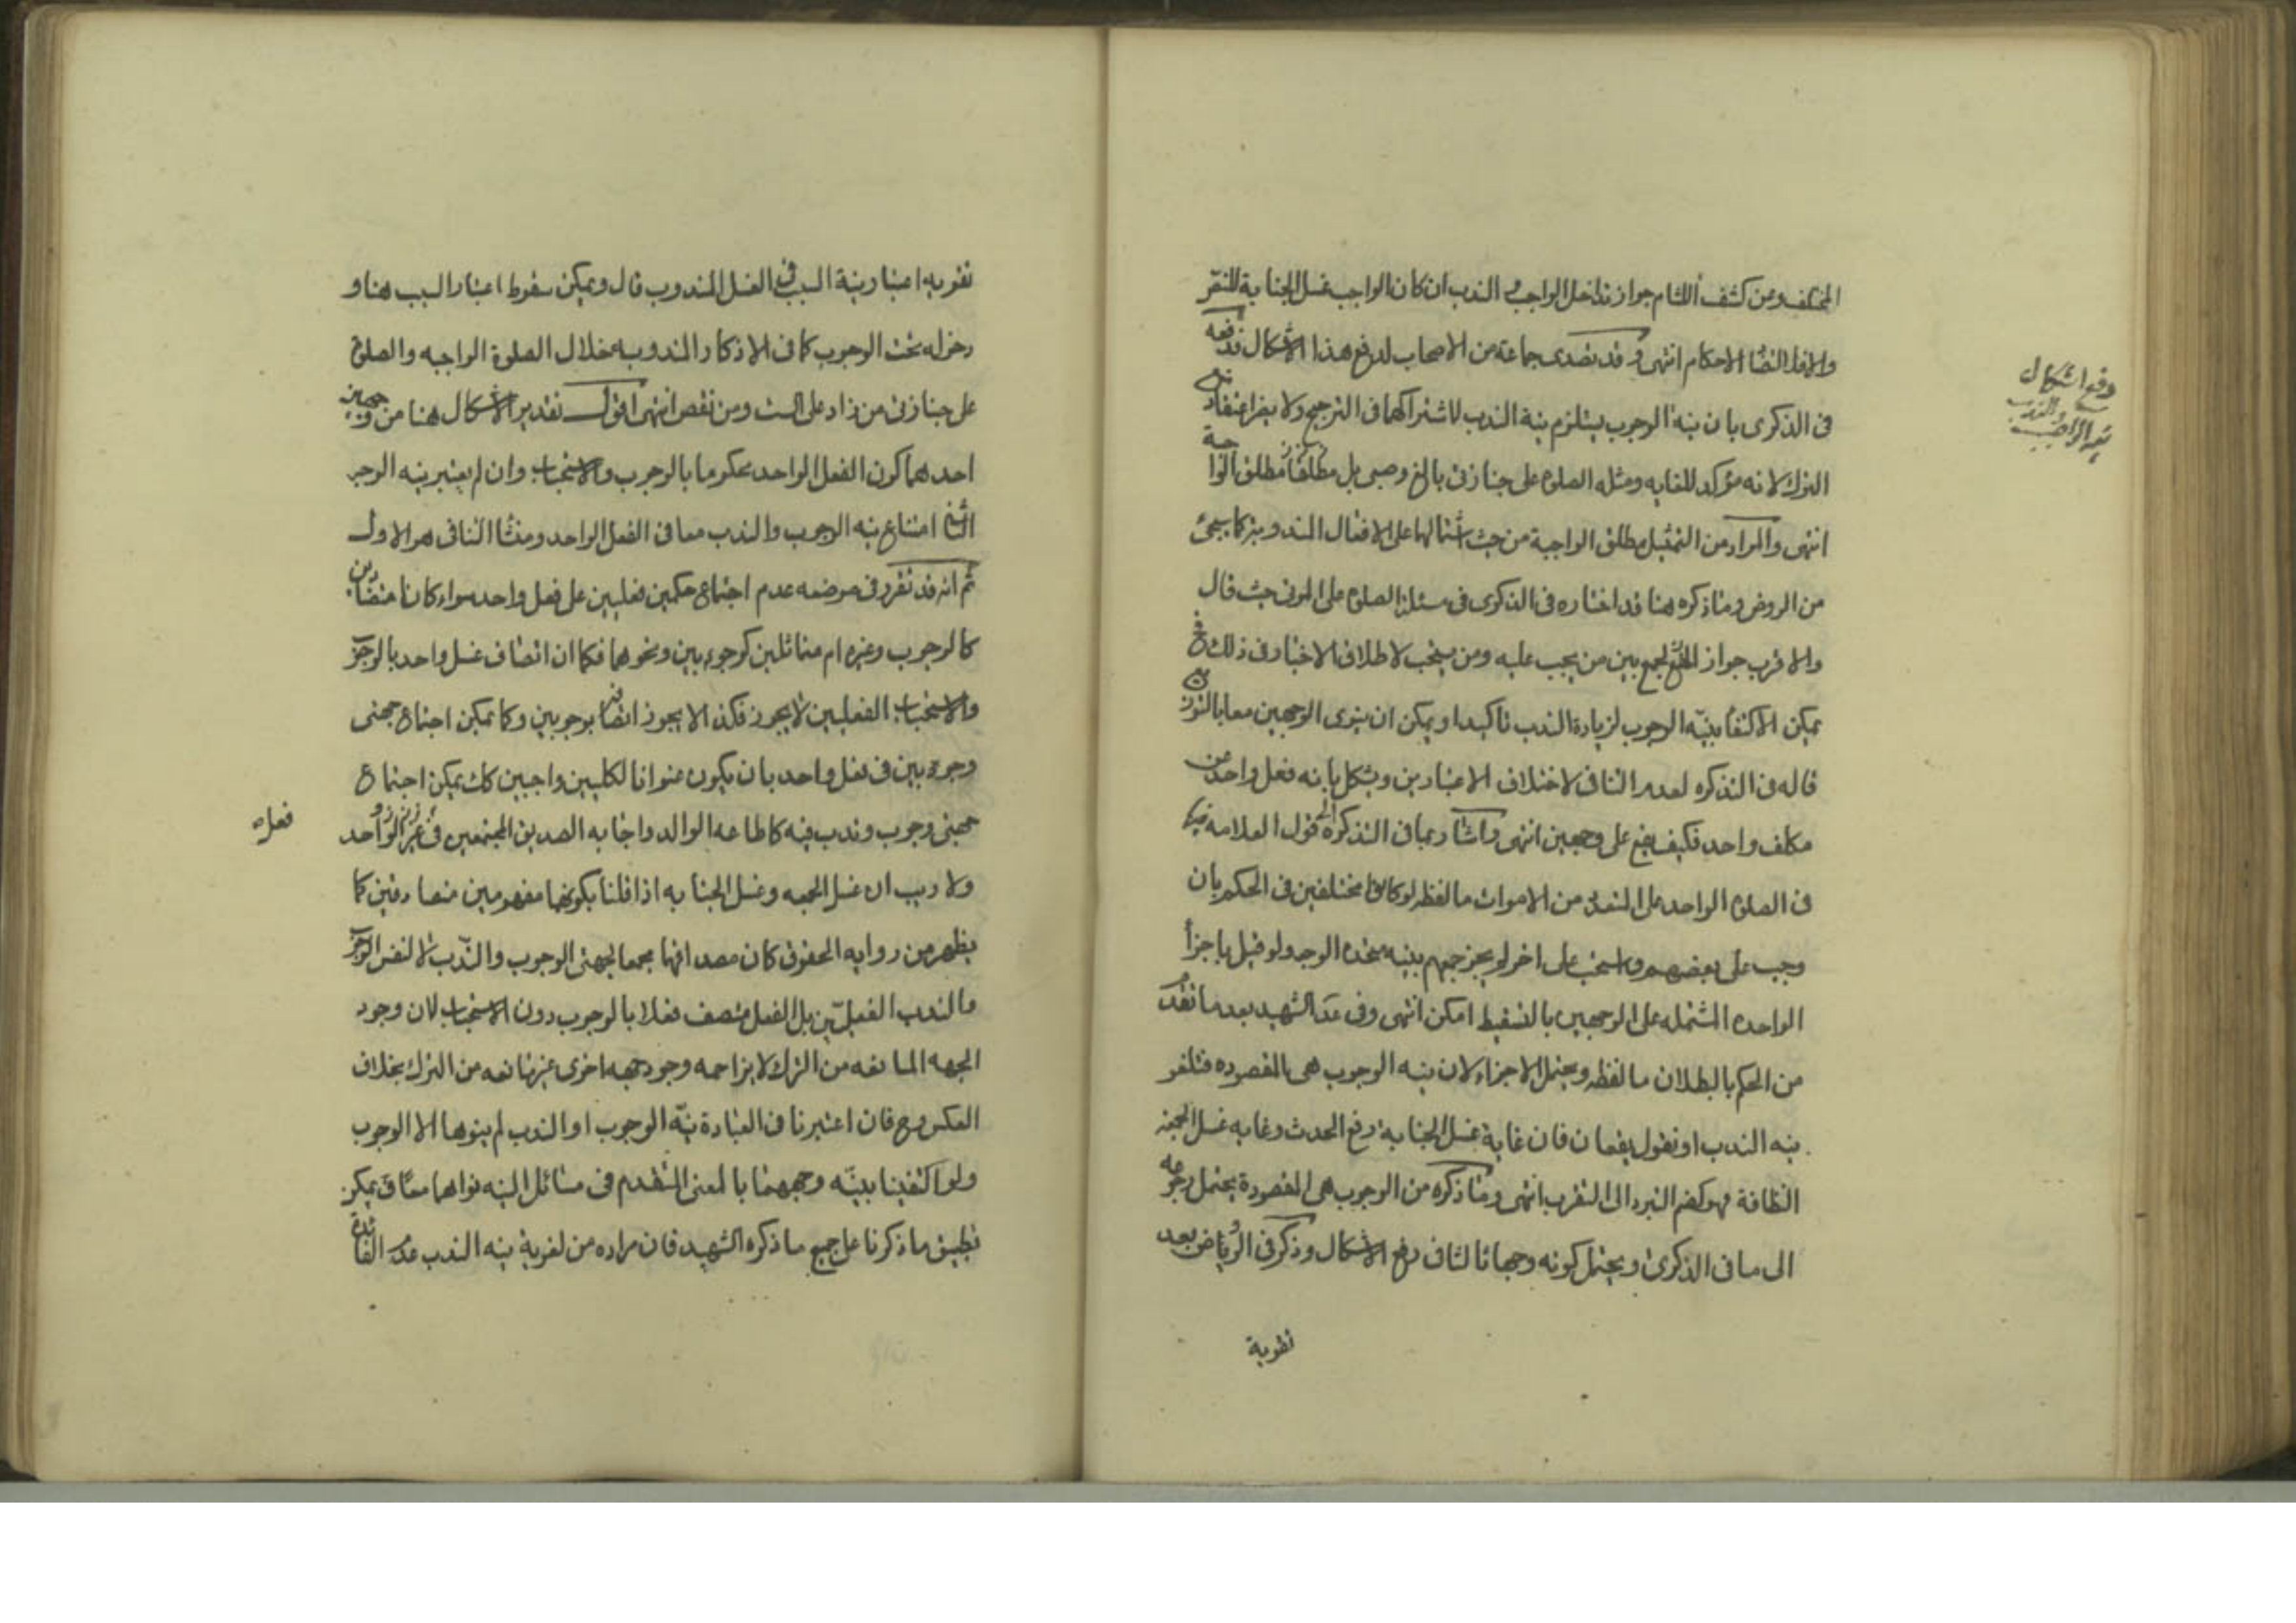 المختلف وعن كشف اللثام جواز تداخل الواجب و الندب ان كان الواجب غسل الجنابة
والافلا لتضا الاحكام انتهى و قد تصدى جماعة من الاصحاب لدفع هذا الاشكال فدفعه
فى الذكرى بان نية الوجوب يستلزم نية الندب لاشتراكهما فى الترجيح ولا يضر اعتقاد منع
الترك لانه مؤكد للغايه ومثله الصلوة على جنازتى بالغ وصبى بل مطلقا مطلق الواجبة
انتهى والمراد من التمثيل بمطلق الواجبة من حيث اشتمالها على الافعال المندوبة كما سيجئ
من الروض وما ذكره هنا قد اختاره فى الذكرى فى مسئلة الصلوة على الموتى حيث قال
والاقرب جواز الجمع بين من يجب عليه ومن يستحب لاطلاق الاخبار فى ذلك
يمكن الاكتفا بنية الوجوب لزيادة الندب تاكيدا ويمكن ان ينوى الوجهين معا بالتوزيع
قاله فى التذكره لعدم التنافى لاختلاف الاعتبارين ويشكل بانه فعل واحد من
مكلف واحد فكيف يقع على وجهين انتهى واشار بما فى التذكرة الى قول العلامه فيها
فى الصلوة الواحده على المتعدد من الاموات ما لفظه لو كانوا مختلفين فى الحكم بان
وجب على بعضهم واستحب على اخر لم يجز جمعهم بنيه متحدة الوجه ولو قيل باجزأ
الواحده المشتمله على الوجهين بالتقسيط امكن انتهى وفى عد الشهيد بعد ما تقدم
من الحكم بالبطلان ما لفظه ويحتمل الاجزاء لان نيه الوجوب هى المقصوده فتلغو
نيه الندب او نقول يقعان فان غاية غسل الجنابة رفع الحدث وغايه غسل الجمعة
النظافة فهو كضم التبرد الى التقرب انتهى وما ذكره من الوجوب هى المقصودة يحتمل رجوعه
الى ما فى الذكرى ويحتمل كونه وجها ثالثا فى رفع الاشكال وذكر فى الرياض بعد
تقوية
دفع اشكال
والندب
تقوية اعتبار نية السبب فى الغسل المندوب قال ويمكن سقوط اعتبار السبب هنا و
دخوله تحت الوجوب كما فى الاذكار المندوبه خلال الصلوة الواجبه والصلوة
على جنازتى من زاد على الست ومن نقص انتهى اقول تقدير الاشكال هنا من وجهين
احدهما كون الفعل الواحد محكوما بالوجوب والاستحباب وان لم يعتبر نيه الوجه
الثانى امتناع نيه الوجوب والندب معا فى الفعل الواحد ومنشا التنافى هو الاول
ثم انه قد تقرر فى موضعه عدم اجتماع حكمين فعليين على فعل واحد سواء كانا متضادين
كالوجوب وغيره ام متماثلين كوجوبين ونحوهما فكما ان اتصاف غسل واحد بالوجوب
والاستحباب الفعليين لا يجوز فكذا لا يجوز اتصافه بوجوبين وكما يمكن اجتماع جهتى
وجوبين فى فعل واحد بان يكون عنوانا لكليين واجبين كك يمكن اجتماع
جهتى وجوب وندب فيه كاطاعه الوالد واجابه الصديق المجتمعين فى الواحد
فعل
ولا ريب ان غسل الجمعه وغسل الجنابه اذا قلنا بكونهما مفهومين متصادقين كما
يظهر من روايه الحقوق كان مصداقهما مجمعا لجهتى الوجوب والندب لا لنفس الوجوب
والندب الفعليّين بل الفعل متصف فعلا بالوجوب دون الاستحباب لان وجود
الجهه المانعه من الترك لا يزاحمه وجود جهه اخرى غير مانعه من الترك بخلاف
العكس وح فان اعتبرنا فى العبادة نيّة الوجوب او الندب لم ينوها الا الوجوب
ولو اكتفينا بنيّه وجههما بالمعنى المتقدم فى مسائل النيه نواهما معًا و يمكن
تطبيق ما ذكرنا على جميع ما ذكره الشهيد فان مراده من لغوية نيه الندب عدم الفائدة